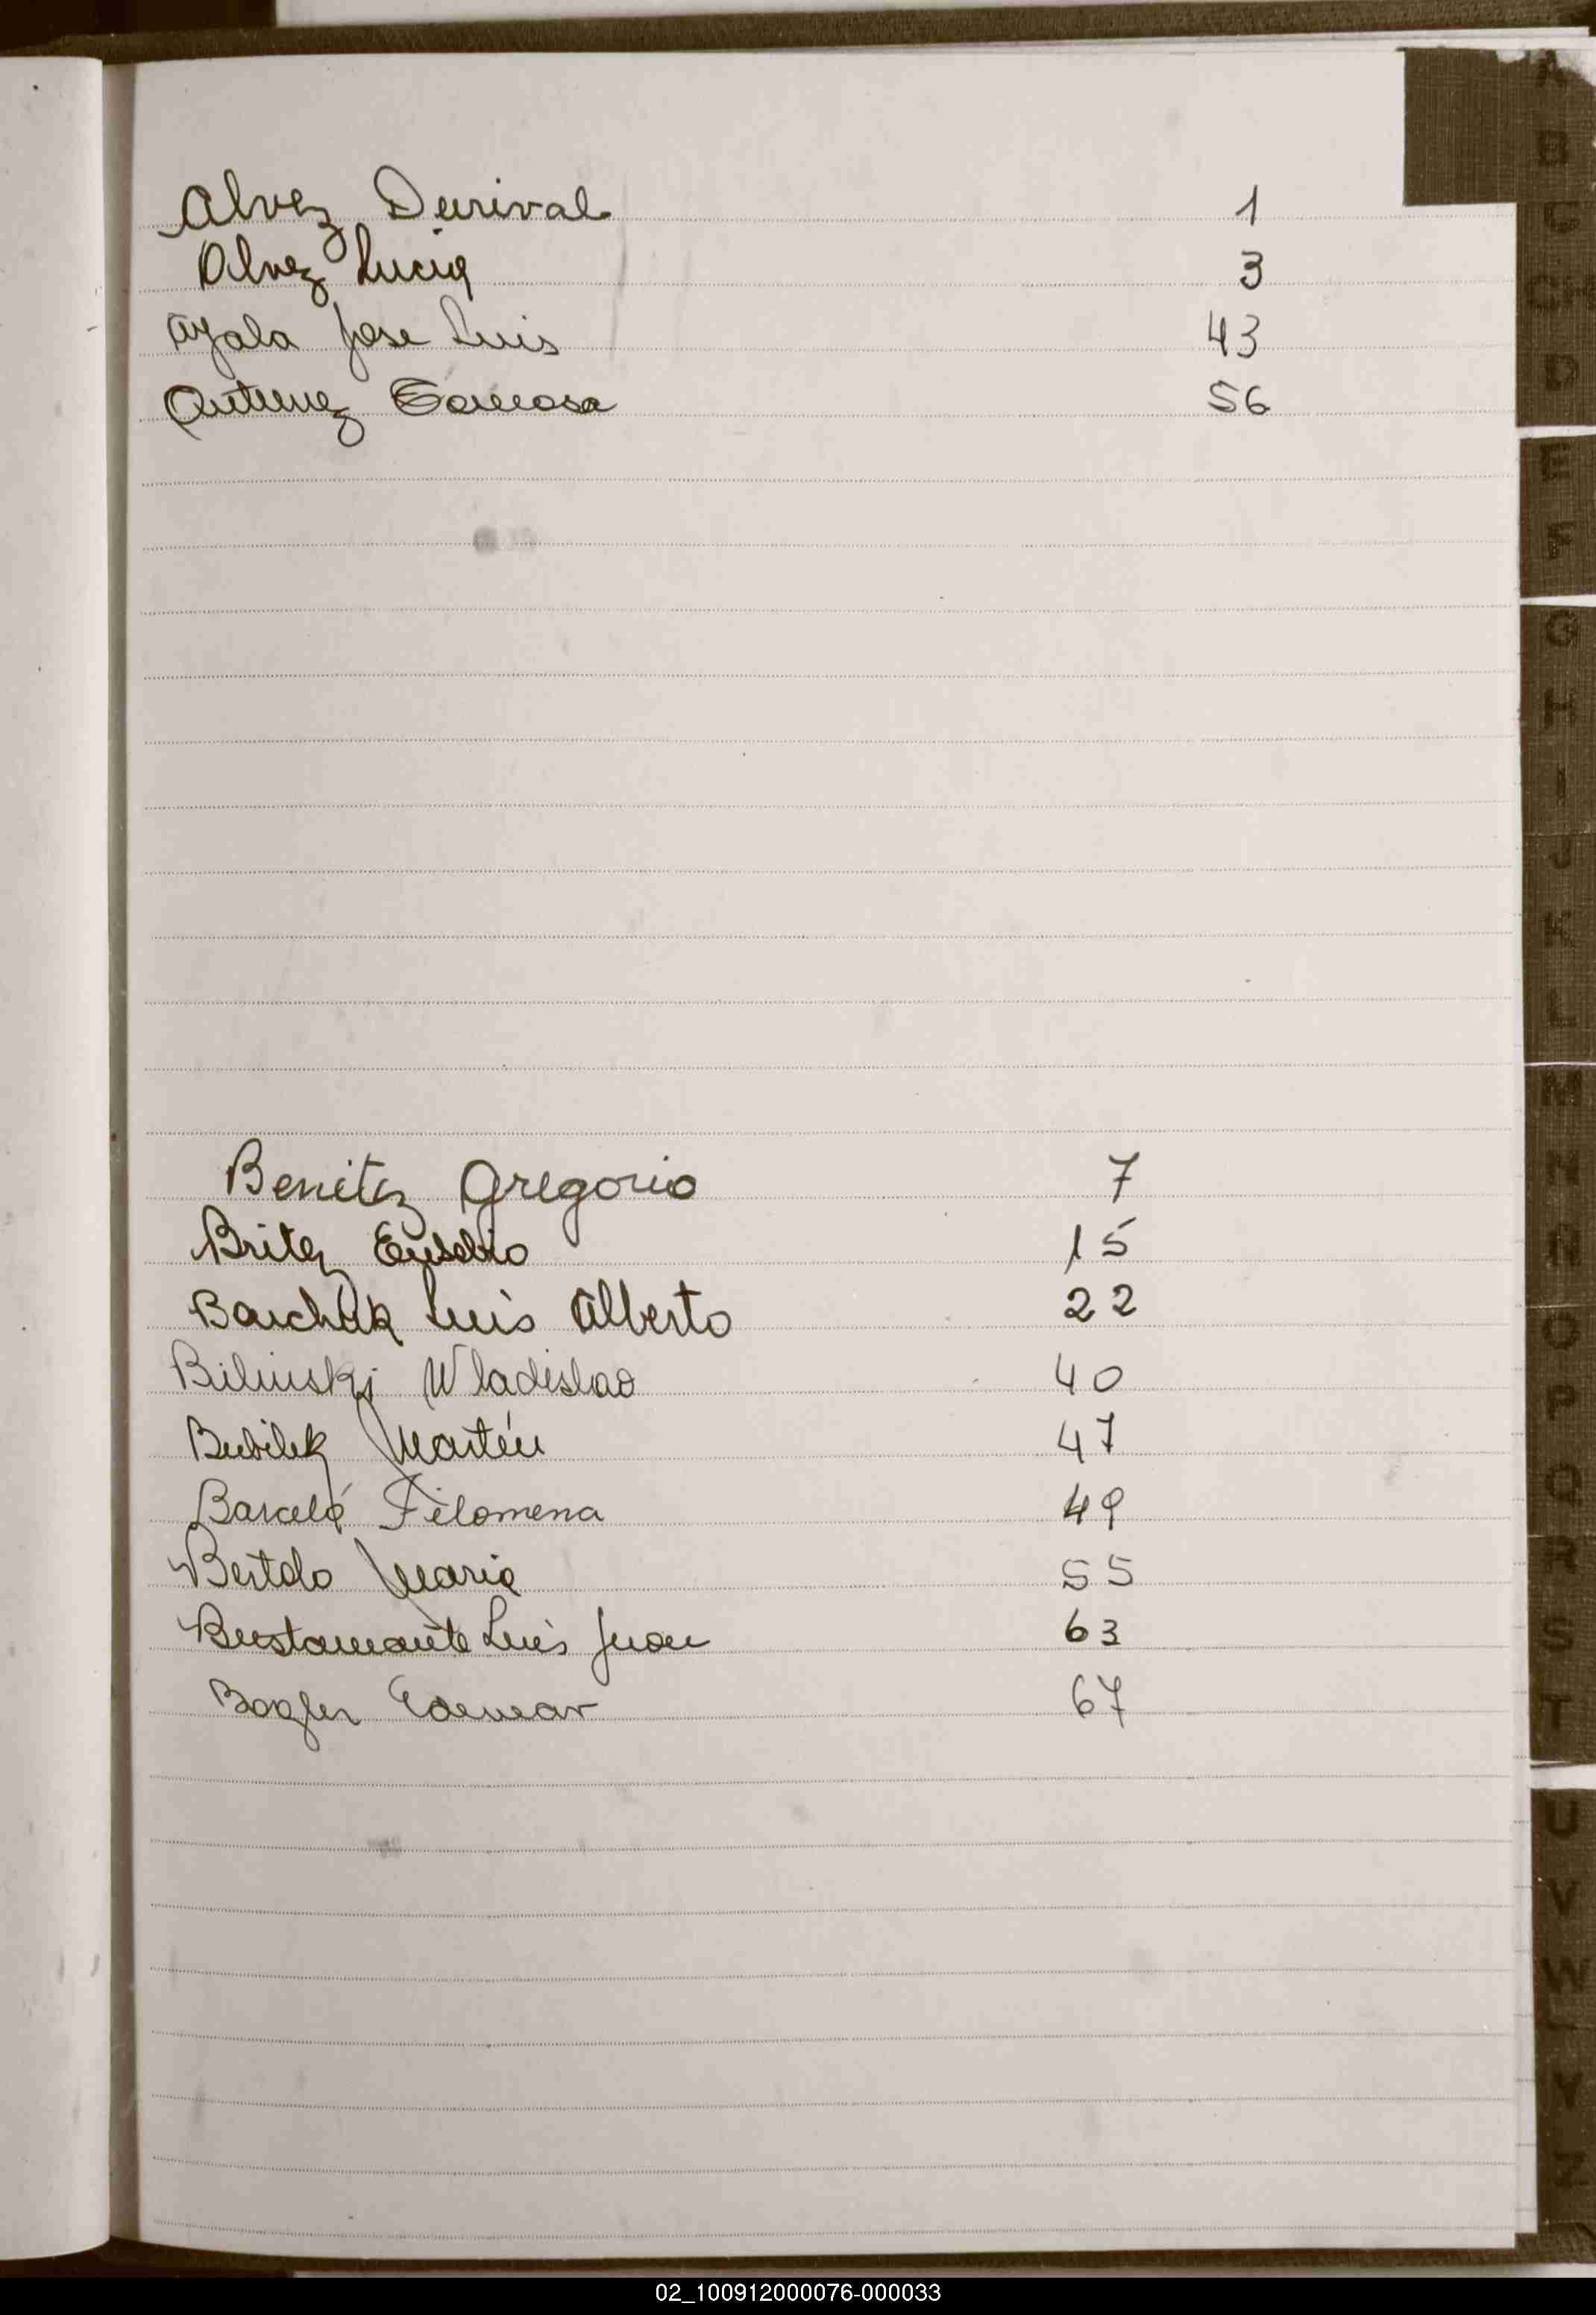 Alvez Durival 1
Alvez Lucia 3
Ayala Jose Luis 43
Antunez 56
Benitez Gregorio 7
Britez Eusebio 15
Barchuk Luis Alberto 22
Bilinski Wladislao 40
Bubilek Martín 47
Barceló Filomena 49
Bertolo Maria 55
Bustamante Luis Juan 63
67
A
B
C
CH
D
E
F
G
H
I
J
K
L
M
N
Ñ
O
P
Q
R
S
T
U
V
W
Y
Z
02_100912000076-000033